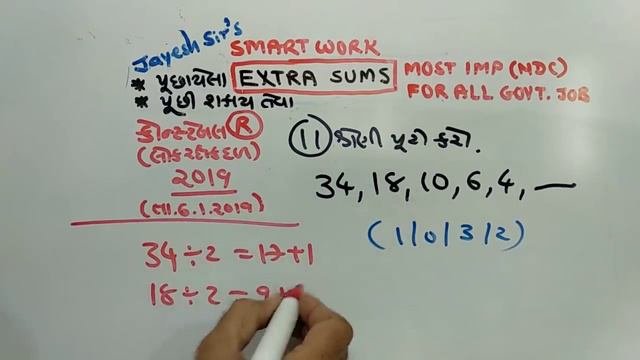 Jayesh Sir's
SMART WORK
* પૂછાયેલા
* પૂછી શકાય તેવા
EXTRA SUMS
MOST IMP (NDC)
FOR ALL GOVT. JOB
કોન્સ્ટેબલ R
(લોકરક્ષકદળ)
2019
(તા.6.1.2019)
11 શ્રેણી પૂરી કરો.
34, 18, 10, 6, 4, —
(1|0|3|2)
34÷2 = 17+1
18÷2 = 9+